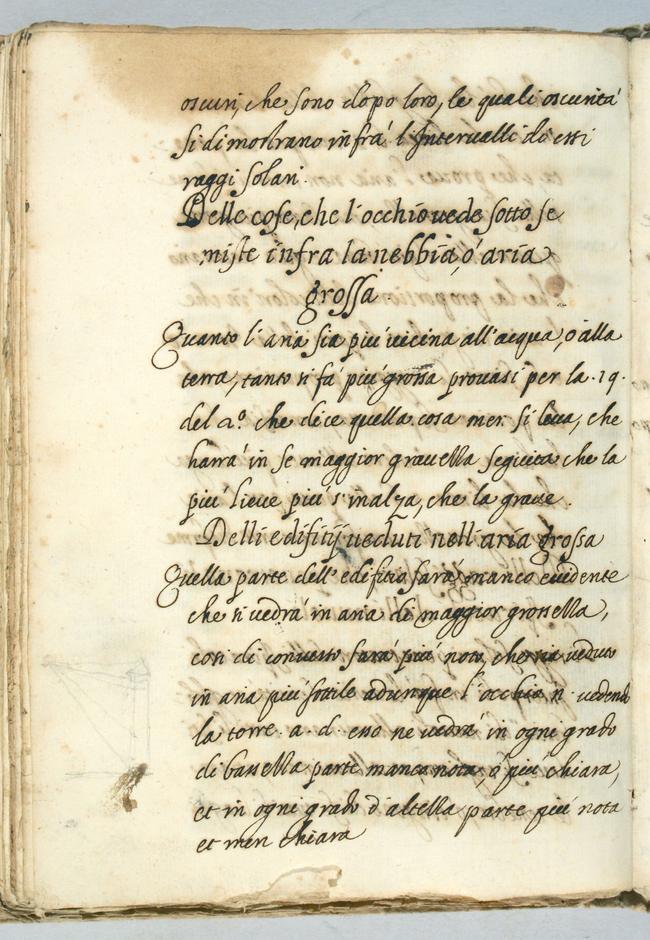 oscuri, che sono dopo loro, le quali oscurità
si dimostrano infrà l'Interualli do essi
raggi solari.
Delle cose, che l'occhio uede sotto se
miste infra la nebbia, ò aria
grossa
Quanto l'aria sia più uicina all'acqua, ò alla
terra, tanto si fà più grossa prouasi per la .19.
del 2º. che dice quella cosa men si leua, che
harrà in se maggior grauezza seguita che la
più lieue più s'inalza, che la graue.
Delli edifitij ueduti nell'aria grossa
Quella parte dell'edifitio sarà manco euidente
che si uedrà in aria di maggior grossezza,
così di conuerso sarà più nota, che sia ueduto
in aria più sottile adunque l'occhio n. uedendo
la torre .a.d. esso ne uedrà in ogni grado
di bassezza parte manco nota ò più chiara,
et in ogni grado d'altezza parte più nota
et men chiara